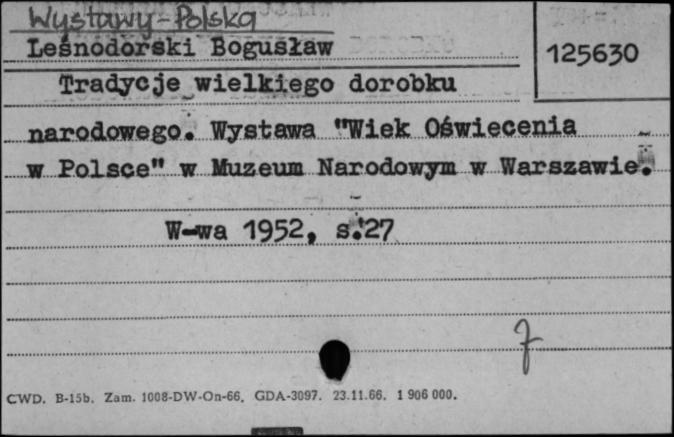 Wystawy-Polska
Leśnodorski Bogusław
125630
Tradycje wielkiego dorobku
narodowego. Wystawa "Wiek Oświecenia
w Polsce" w Muzeum Narodowym w Warszawie.
W-wa 1952, s.27
CWD. B-15b. Zam. 1008-DW-On-66. GDA-3097. 23.11.66. 1 906 000.